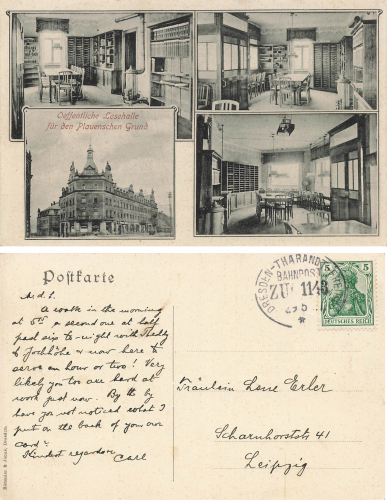 Oeffentliche Lesehalle
für den Plauenschen Grund
Postkarte
M. d. L.
A walk in the morning
at 5 & a second one at half
past six to-night with Theddy
to Jochhöhe & now here to
serve an hour or two! Very
likely you too are hard at
work just now. By the by
have you not noticed what I
put on the back of your one
card?
Kindest regards
Carl
Fräulein Lene Erler
Scharnhorststr 41
Leipzig
DRESDEN-THARANDT
BAHNPOST
ZUG 1143
5
5
DEUTSCHES REICH